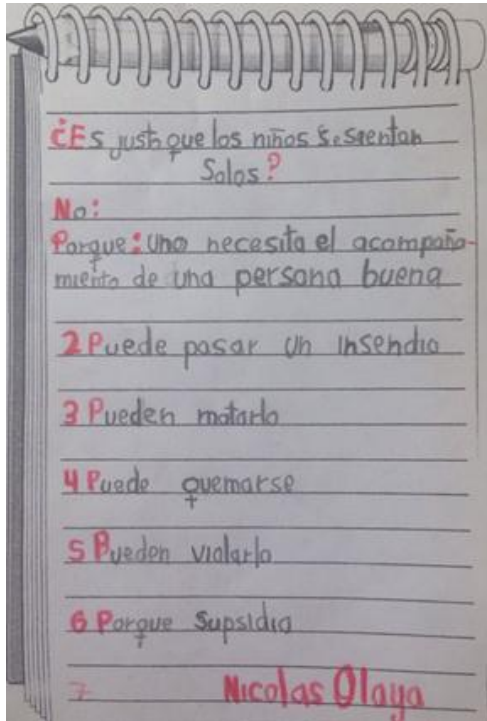 ¿Es justo que los niños se sientan
Solos?
No:
Porque: Uno necesita el acompaña-
miento de una persona buena
2 Puede pasar un insendio
3 Pueden matarlo
4 Puede quemarse
5 Pueden violarlo
6 Porque Supsidio
7 Nicolas Olaya